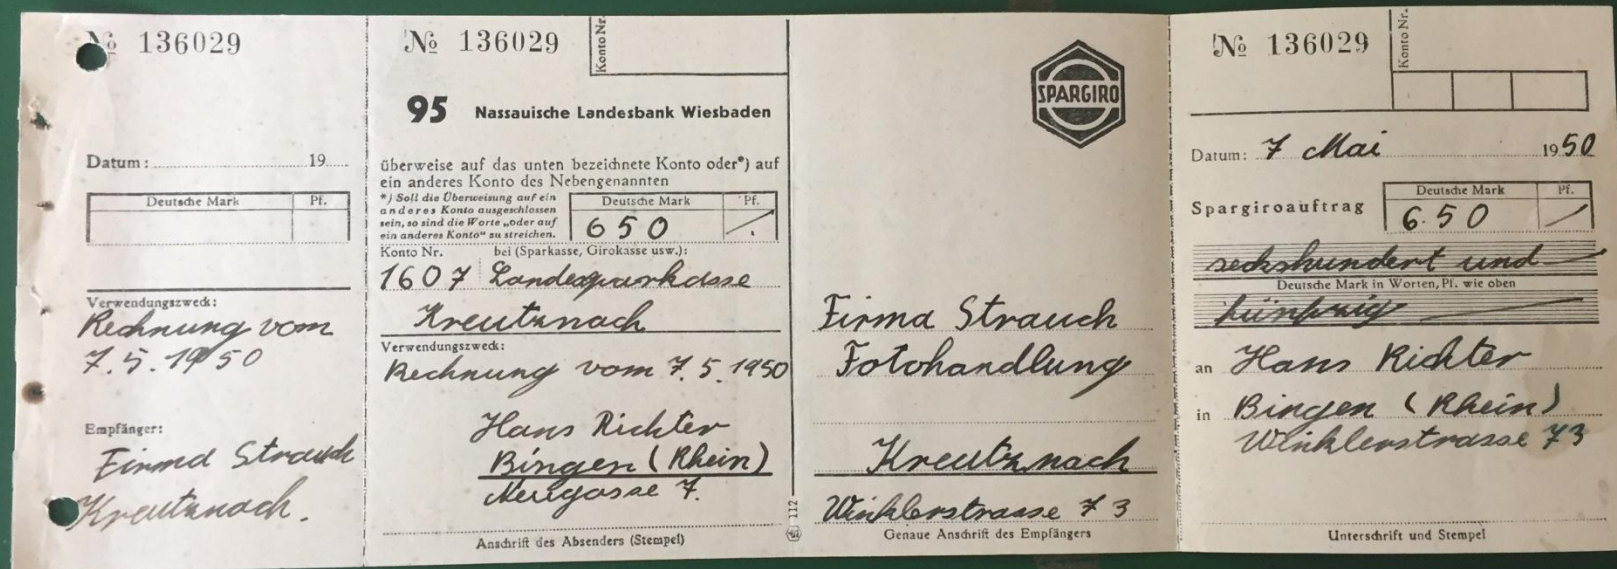 № 136029
Datum: 19
Deutsche Mark Pf.
Verwendungszweck:
Rechnung vom
7.5.1950
Empfänger:
Firma Strauch
Kreutznach.
№ 136029
Konto Nr.
95 Nassauische Landesbank Wiesbaden
überweise auf das unten bezeichnete Konto oder*) auf
ein anderes Konto des Nebengenannten
*) Soll die Überweisung auf ein
anderes Konto ausgeschlossen
sein, so sind die Worte „oder auf
ein anderes Konto“ zu streichen.
Deutsche Mark Pf.
650
Konto Nr. bei (Sparkasse, Girokasse usw.):
1607 Landesparkasse
Kreutznach
Verwendungszweck:
Rechnung vom 7.5.1950
Hans Richter
Bingen (Rhein)
7.
Anschrift des Absenders (Stempel)
112
SPARGIRO
Firma Strauch
Fotohandlung
Kreutznach
Winklerstrasse 73
Genaue Anschrift des Empfängers
№ 136029
Konto Nr.
Datum: 7 Mai 1950
Spargiroauftrag
Deutsche Mark Pf.
6.50
sechshundert und
Deutsche Mark in Worten, Pf. wie oben
fünfzig
an Hans Richter
in Bingen (Rhein)
Winklerstrasse 73
Unterschrift und Stempel